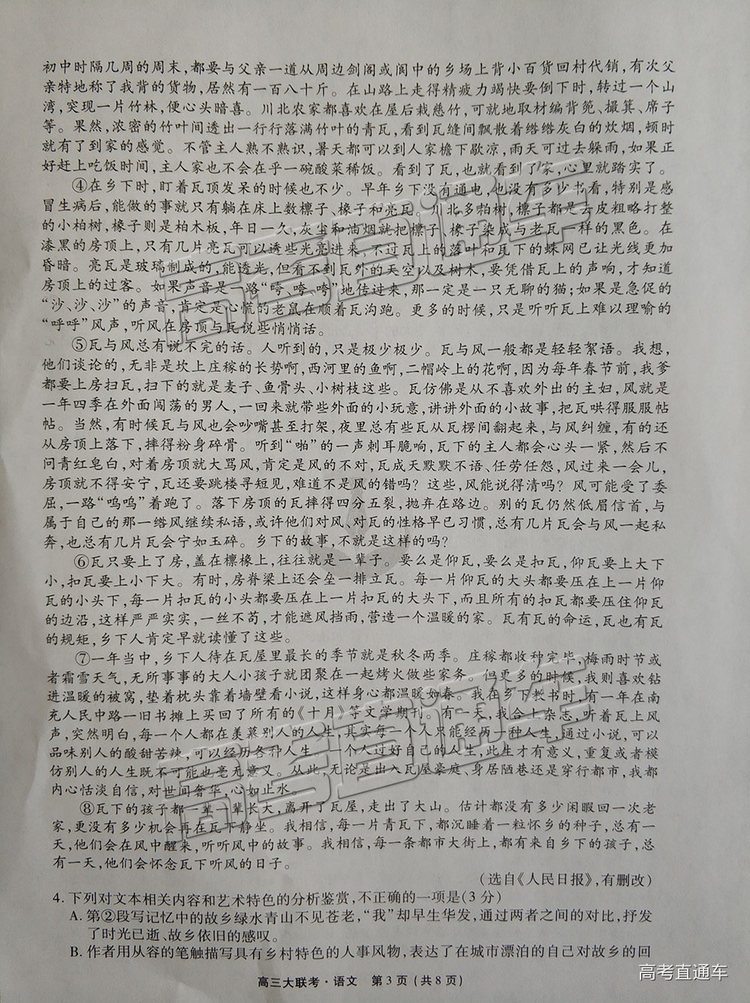 初中时隔几周的周末，都要与父亲一道从周边剑阁或阆中的乡场上背小百货回村代销，有次父
亲特地称了我背的货物，居然有一百八十斤。在山路上走得精疲力竭快要倒下时，转过一个山
湾，突现一片竹林，便心头暗喜。川北农家都喜欢在屋后栽慈竹，可就地取材编背篼、撮箕、席子
等。果然，浓密的竹叶间透出一行行落满竹叶的青瓦，看到瓦缝间飘散着绺绺灰白的炊烟，顿时
就有了到家的感觉。不管主人熟不熟识，暑天都可以到人家檐下歇凉，雨天可过去躲雨，如果正
好赶上吃饭时间，主人家也不会在乎一碗酸菜稀饭。看到了瓦，也就看到了家，心里就踏实了。
④在乡下时，盯着瓦顶发呆的时候也不少。早年乡下没有通电，也没有多少书看，特别是感
冒生病后，能做的事就只有躺在床上数檩子、椽子和亮瓦。川北多柏树，檩子都是去皮粗略打整
的小柏树，椽子则是柏木板，年日一久，灰尘和油烟就把檩子、椽子染成与老瓦一样的黑色。在
漆黑的房顶上，只有几片亮瓦可以透些光亮进来，不过瓦上的落叶和瓦下的蛛网已让光线更加
昏暗。亮瓦是玻璃制成的，能透光，但看不到瓦外的天空以及树木，要凭借瓦上的声响，才知道
房顶上的过客。如果声音是一路“咵、咵、咵”地传过来，那一定是一只无聊的猫；如果是急促的
“沙、沙、沙”的声音，肯定是心慌的老鼠在顺着瓦沟跑。更多的时候，只是听听瓦上难以理喻的
“呼呼”风声，听风在房顶与瓦说些悄悄话。
⑤瓦与风总有说不完的话。人听到的，只是极少极少。瓦与风一般都是轻轻絮语。我想，
他们谈论的，无非是坎上庄稼的长势啊，西河里的鱼啊，二帽岭上的花啊，因为每年春节前，我爹
都要上房扫瓦，扫下的就是麦子、鱼骨头、小树枝这些。瓦仿佛是从不喜欢外出的主妇，风就是
一年四季在外面闯荡的男人，一回来就带些外面的小玩意，讲讲外面的小故事，把瓦哄得服服帖
帖。当然，有时候瓦与风也会吵嘴甚至打架，夜里总有些瓦从瓦楞间翻起来，与风纠缠，有的还
从房顶上落下，摔得粉身碎骨。听到“啪”的一声刺耳脆响，瓦下的主人都会心头一紧，然后不
问青红皂白，对着房顶就大骂风，肯定是风的不对，瓦成天默默不语、任劳任怨，风过来一会儿，
房顶就不得安宁，瓦还要跳楼寻短见，难道不是风的错吗？这些，风能说得清吗？风可能受了委
屈，一路“呜呜”着跑了。落下房顶的瓦摔得四分五裂，抛弃在路边。别的瓦仍然低眉信首，与
属于自己的那一绺风继续私语，或许他们对风、对瓦的性格早已习惯，总有几片瓦会与风一起私
奔，也总有几片瓦会宁如玉碎。乡下的故事，不就是这样的吗？
⑥瓦只要上了房，盖在檩椽上，往往就是一辈子。要么是仰瓦，要么是扣瓦，仰瓦要上大下
小，扣瓦要上小下大。有时，房脊梁上还会垒一排立瓦。每一片仰瓦的大头都要压在上一片仰
瓦的小头下，每一片扣瓦的小头都要压在上一片扣瓦的大头下，而且所有的扣瓦都要压住仰瓦
的边沿，这样严严实实，一丝不苟，才能遮风挡雨，营造一个温暖的家。瓦有瓦的命运，瓦也有瓦
的规矩，乡下人肯定早就读懂了这些。
⑦一年当中，乡下人待在瓦屋里最长的季节就是秋冬两季。庄稼都收种完毕，梅雨时节或
者霜雪天气，无所事事的大人小孩子就团聚在一起烤火做些家务。但更多的时候，我则喜欢钻
进温暖的被窝，垫着枕头靠着墙壁看小说，这样身心都温暖如春。我在乡下长书时，有一年在南
充人民中路一旧书摊上买回了所有的《十月》等文学期刊。有一天，我合上杂志，听着瓦上风
声，突然明白，每一个人都在羡慕别人的人生，其实每一个人只能经历一种人生，通过小说，可以
品味别人的酸甜苦辣，可以经历各种人生。一个人过好自己的人生，此生才有意义，重复或者模
仿别人的人生既不可能也毫无意义。从此，无论是出入瓦屋豪庭、身居陋巷还是穿行都市，我都
内心恬淡自信，对世间奢华，心如止水。
⑧瓦下的孩子都一辈一辈长大，离开了瓦屋，走出了大山。估计都没有多少闲暇回一次老
家，更没有多少机会再在瓦下静坐。我相信，每一片青瓦下，都沉睡着一粒怀乡的种子，总有一
天，他们会在风中醒来，听听风中的故事。我相信，每一条都市大街上，都有来自乡下的孩子，总
有一天，他们会怀念瓦下听风的日子。
（选自《人民日报》，有删改）
4.下列对文本相关内容和艺术特色的分析鉴赏，不正确的一项是（3分）
A.第②段写记忆中的故乡绿水青山不见苍老，“我”却早生华发，通过两者之间的对比，抒发
了时光已逝、故乡依旧的感叹。
B.作者用从容的笔触描写具有乡村特色的人事风物，表达了在城市漂泊的自己对故乡的回
高三大联考·语文 第3页（共8页）
高考直通车